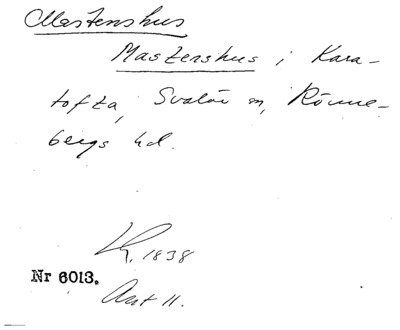 Mastenshus
Mastenshus i Kara-
tofta, Svalöv sn, Rönne-
bergs hd.
K. 1838
Nr 6013.
Avt 11.